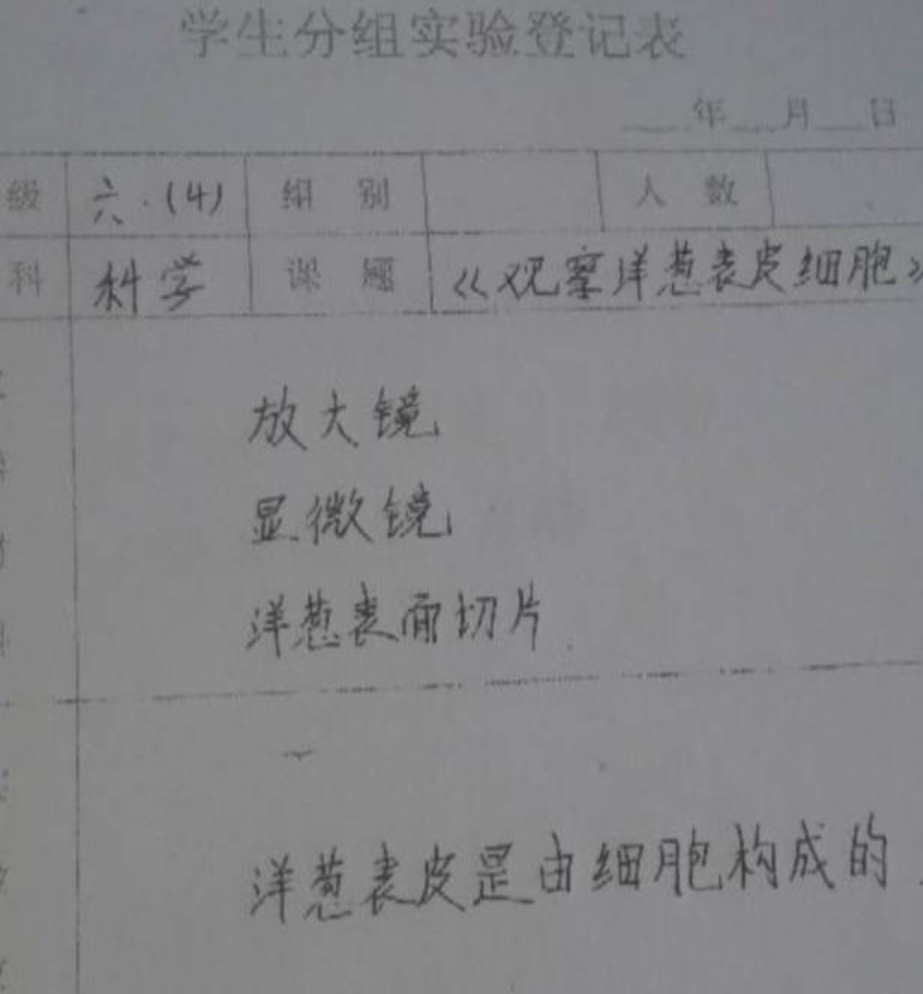 学生分组实验登记表
年 月 日
级 六.(4) 组别 人数
科 科学 课题 《观察洋葱表皮细胞》
放大镜
显微镜
洋葱表面切片
洋葱表皮是由细胞构成的